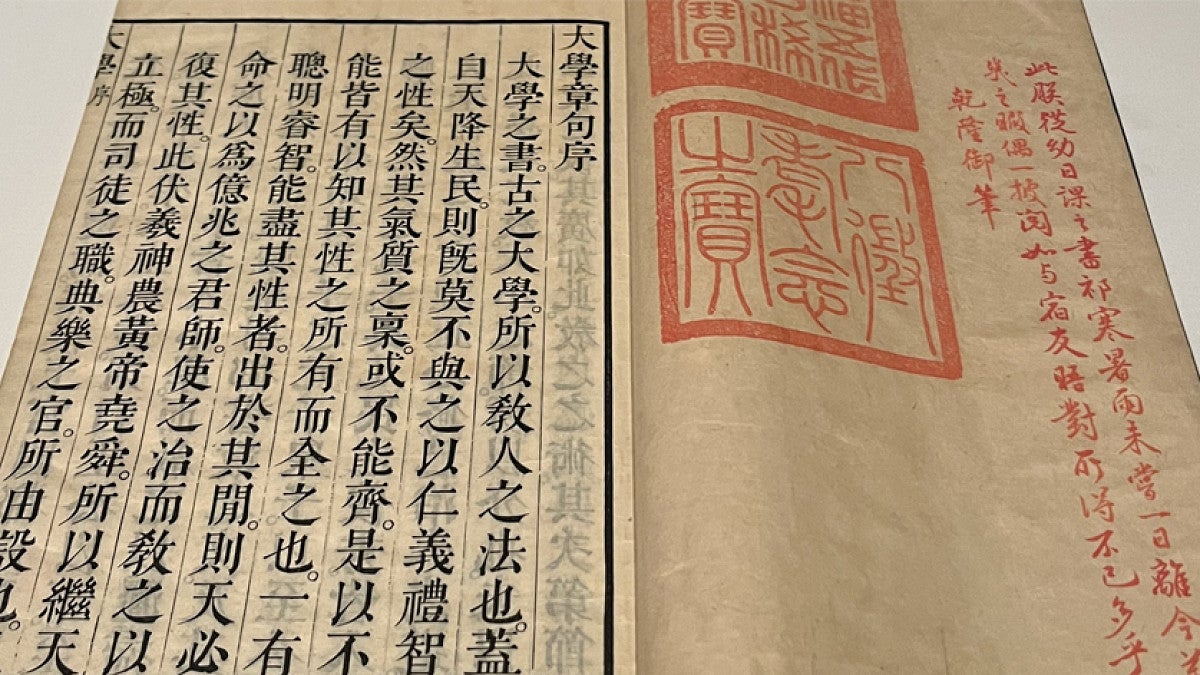 此朕從幼日課之書祁寒暑雨未嘗一日離今
幾之暇偶一披閱如与宿友晤對所得不已多乎
乾隆御筆
八徵
耄念
之寶
大學章句序
大學之書。古之大學。所以敎人之法也。蓋
自天降生民。則旣莫不與之以仁義禮智
之性矣。然其氣質之稟。或不能齊。是以不
能皆有以知其性之所有而全之也。一有
聰明睿智。能盡其性者。出於其閒。則天必
命之以爲億兆之君師。使之治而敎之以
復其性。此伏羲神農黃帝堯舜。所以繼天
立極。而司徒之職。典樂之官。所由設也。
大學序